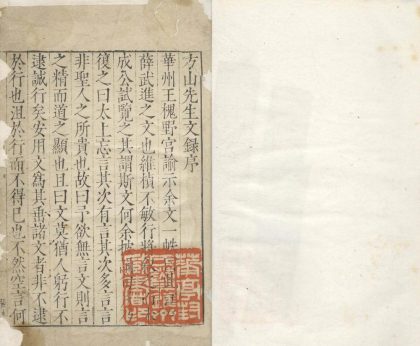 方山先生文録序
華州王槐野宮諭示余文一帙
薛武進之文也維楨不敏行將
成公試覽之其謂斯文何余披
復之曰太上忘言其次有言其次多言言
非聖人之所貴也故曰予欲無言文則言
之精而道之顯也且曰文莫猶人躬行不
逮誠行矣安用文爲其垂諸文者非不逮
於行也沮於行而不得已也不然空言何